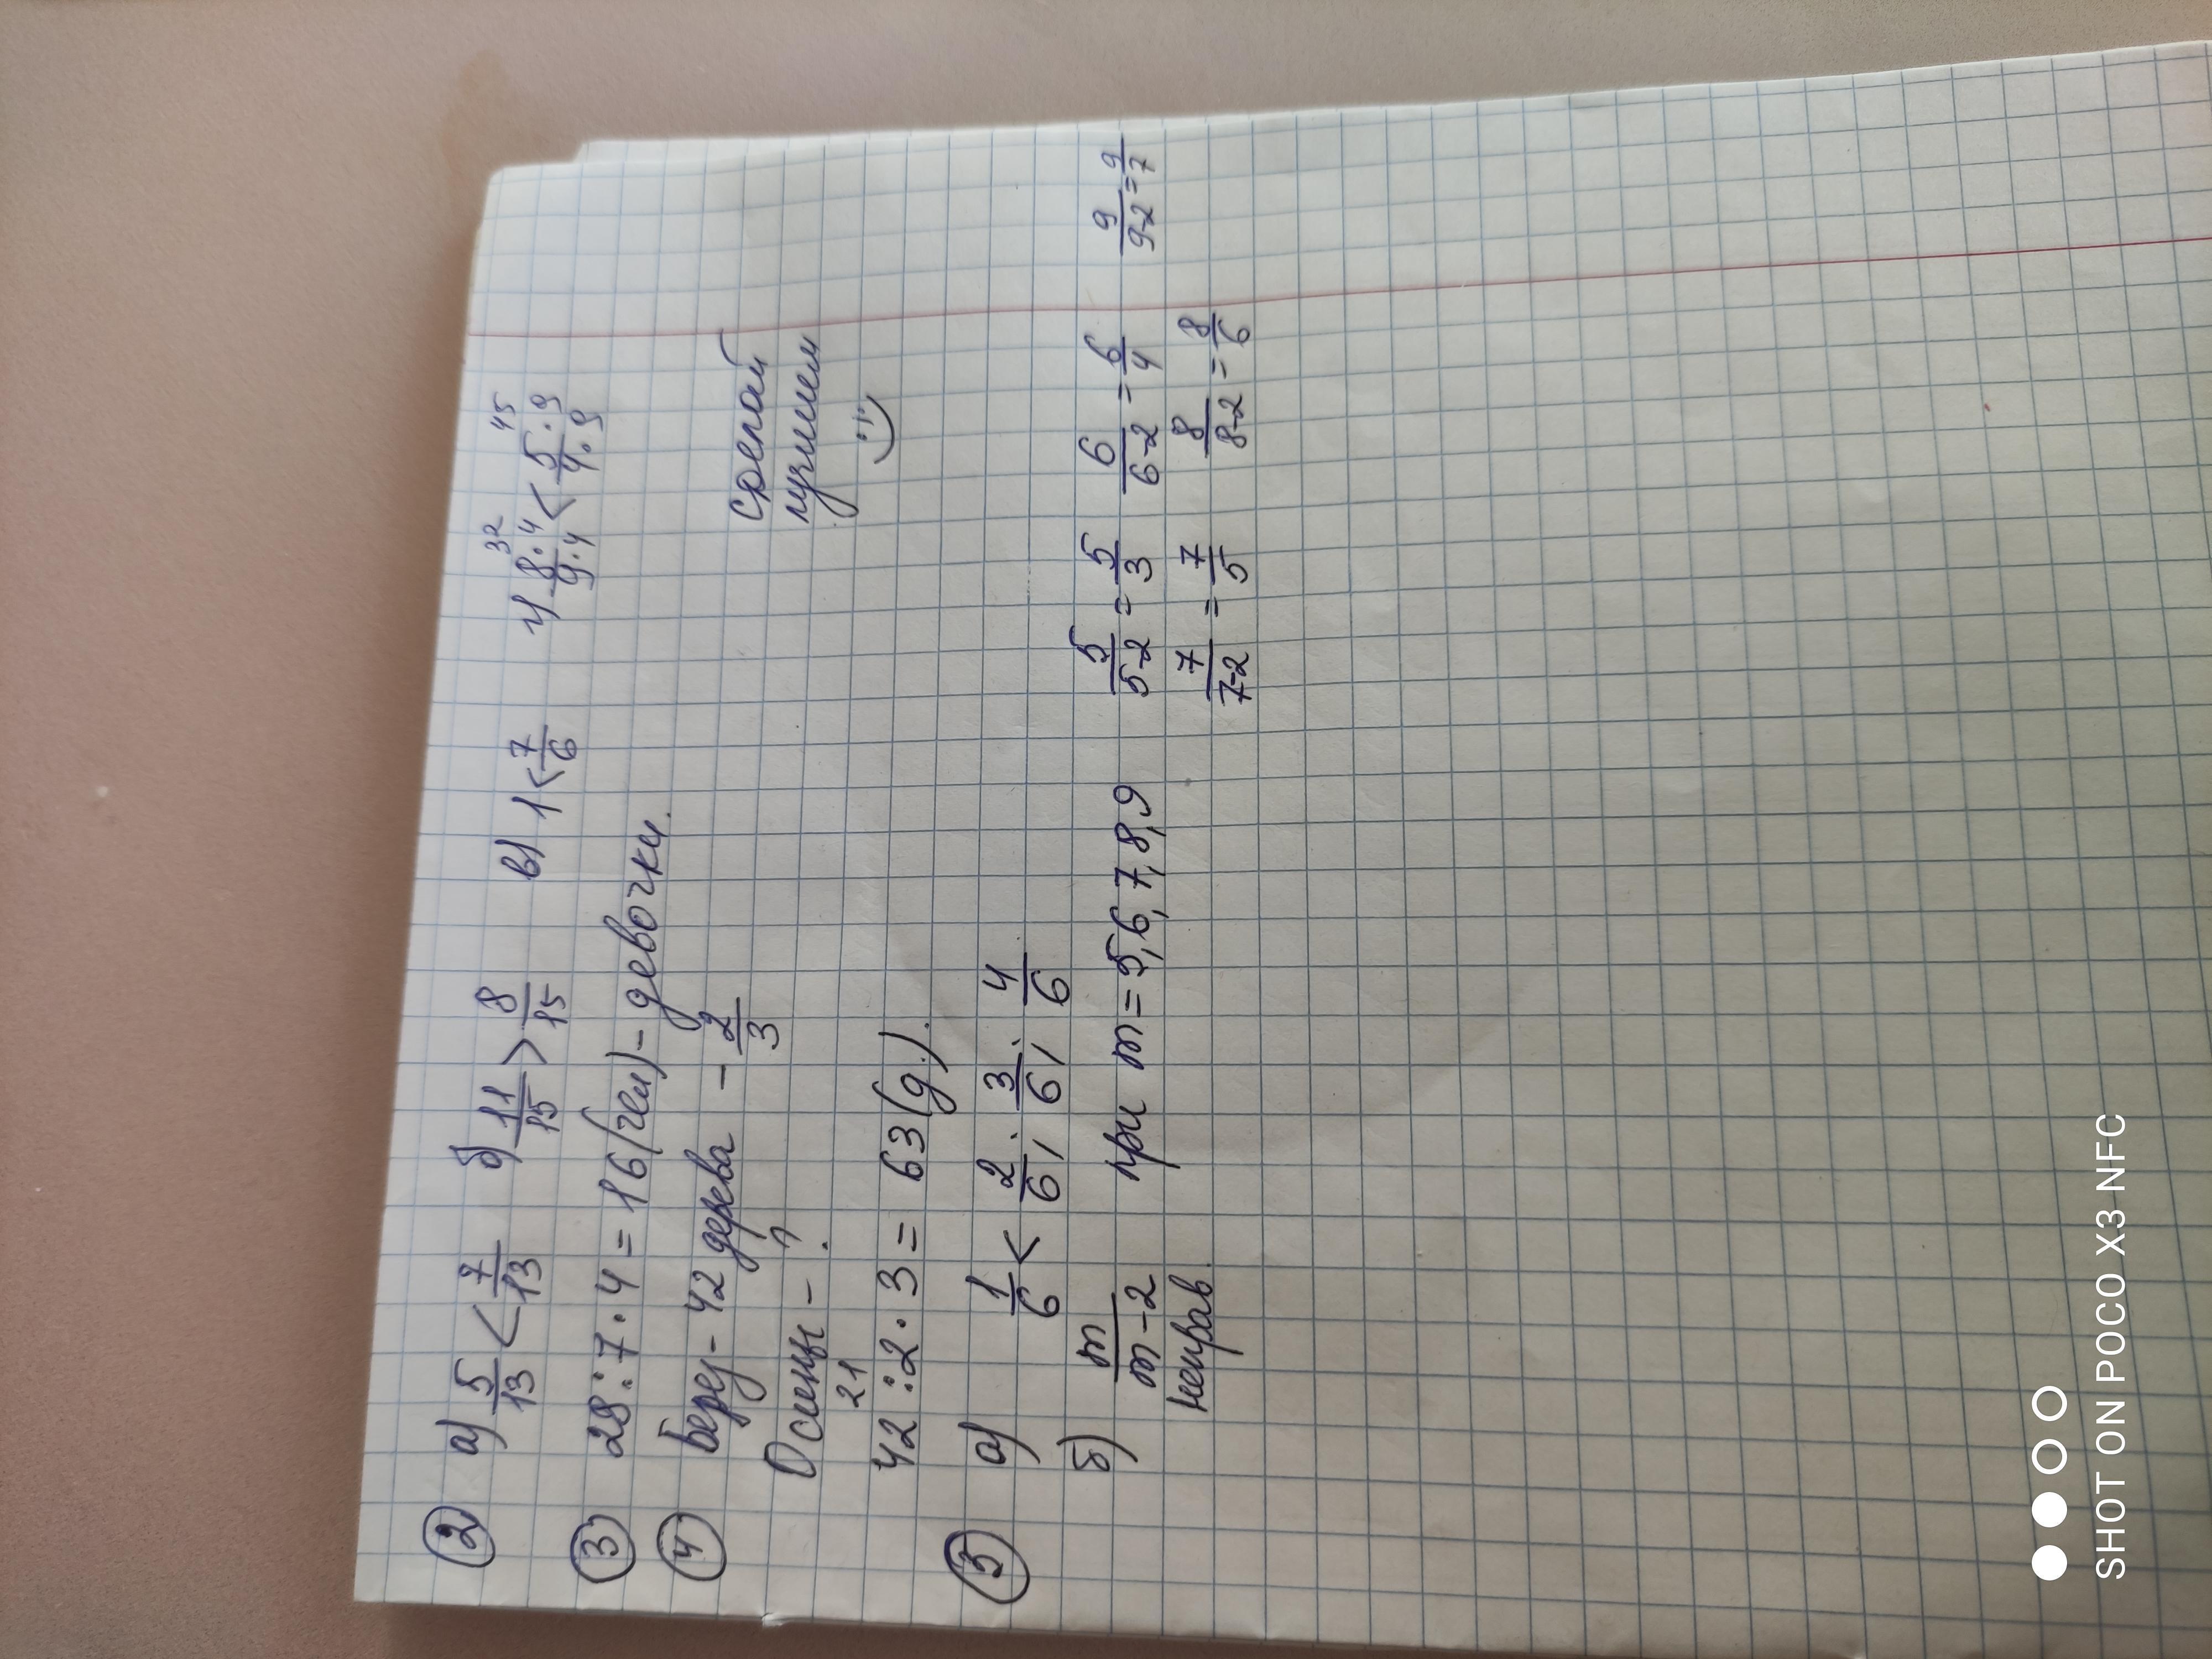 ② а) 5/13 < 7/13 б) 11/15 > 8/15 в) 1 < 7/6 г) 8·4/9·4 < 5·9/4·9
32 45
③ 28:7·4=16(чел)-девочки.
④ Берез-42 дерева - 2/3
Осины-?
сделай
лучшем
:)
21
42:2·3=63(д).
⑤ а) 1/6 < 2/6; 3/6; 4/6
б) m/m-2 при m=5,6,7,8,9 5/5-2=5/3 6/6-2=6/4 9/9-2=9/7
неправ. 7/7-2=7/5 8/8-2=8/6
SHOT ON POCO X3 NFC